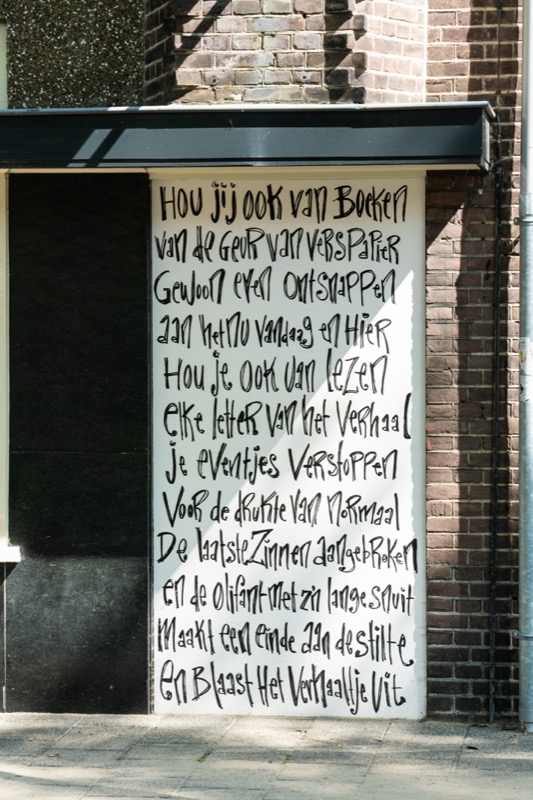 Hou jij ook van Boeken
van de Geur van verspapier
Gewoon even ontsnappen
aan het nu vandaag en Hier
Hou je ook van lezen
elke letter van het verhaal
je eventjes verstoppen
voor de drukte van normaal
De laatste Zinnen aangebroken
en de olifant met zijn lange snuit
maakt een einde aan de stilte
en Blaast Het Verhaaltje Uit